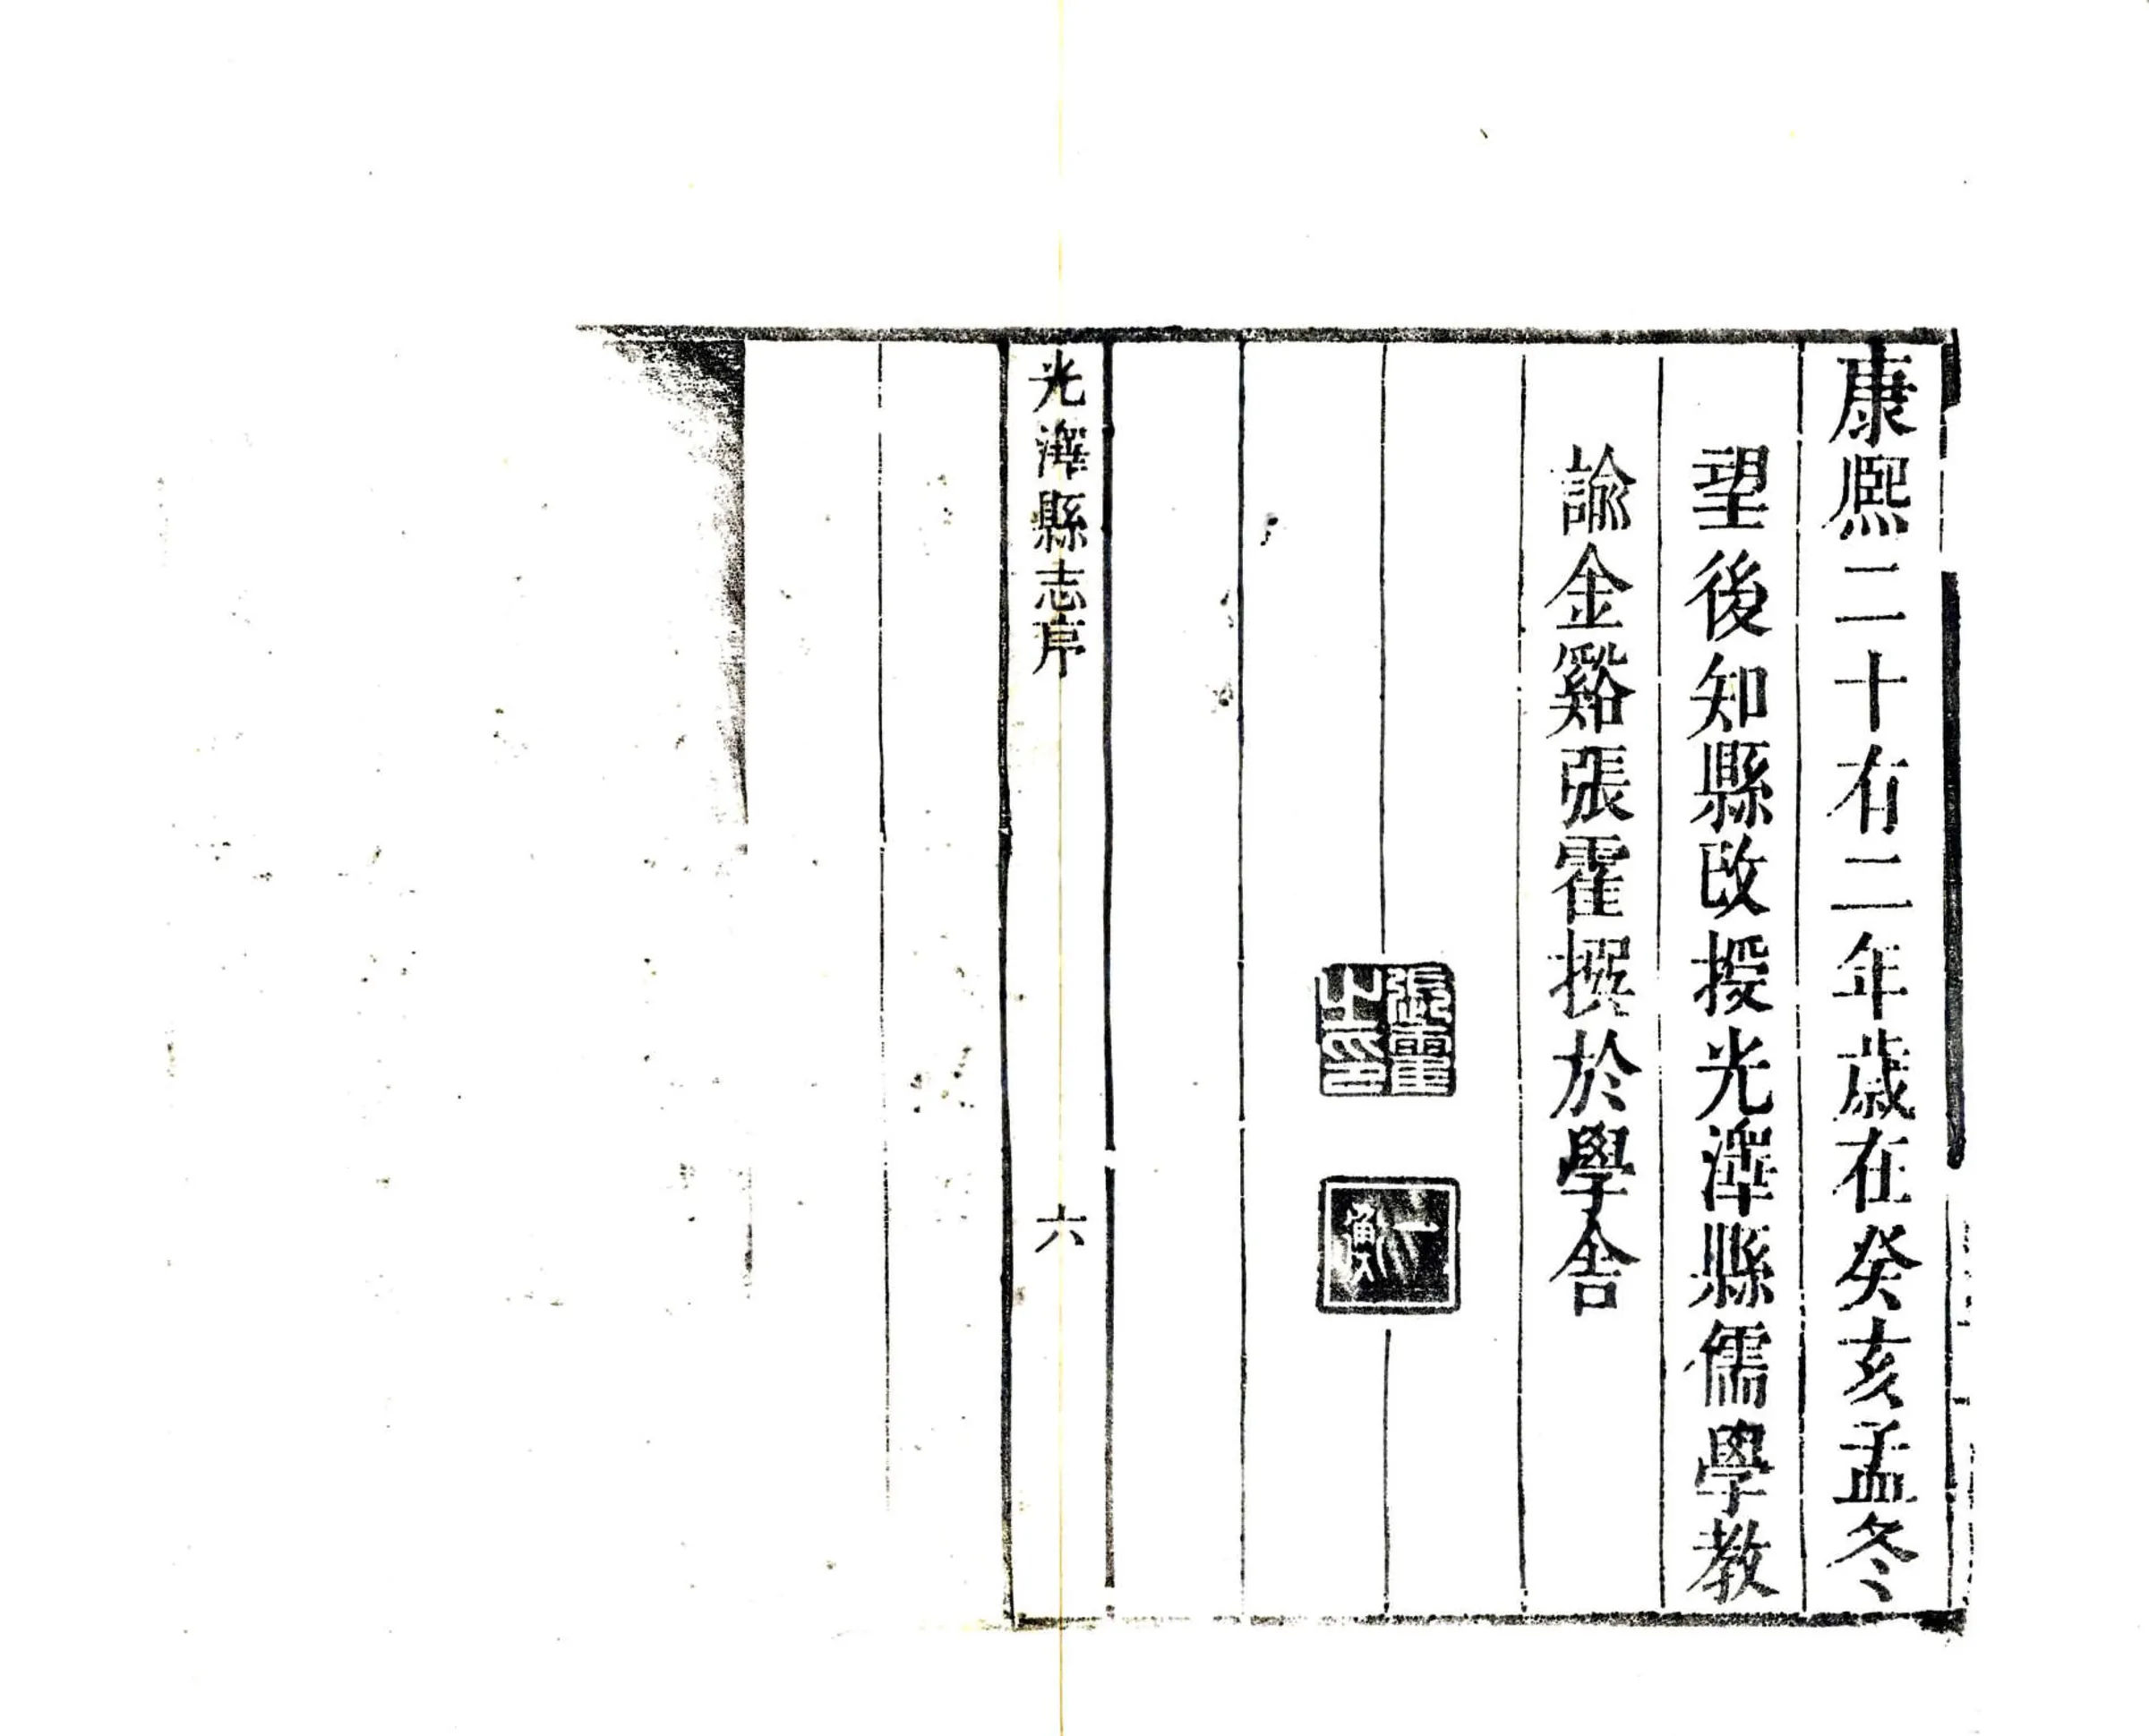 康熙二十有二年歲在癸亥孟冬
望後知縣改授光澤縣儒學教
諭金谿張霍撰於學舍
張霍
之印
光澤縣志序
六